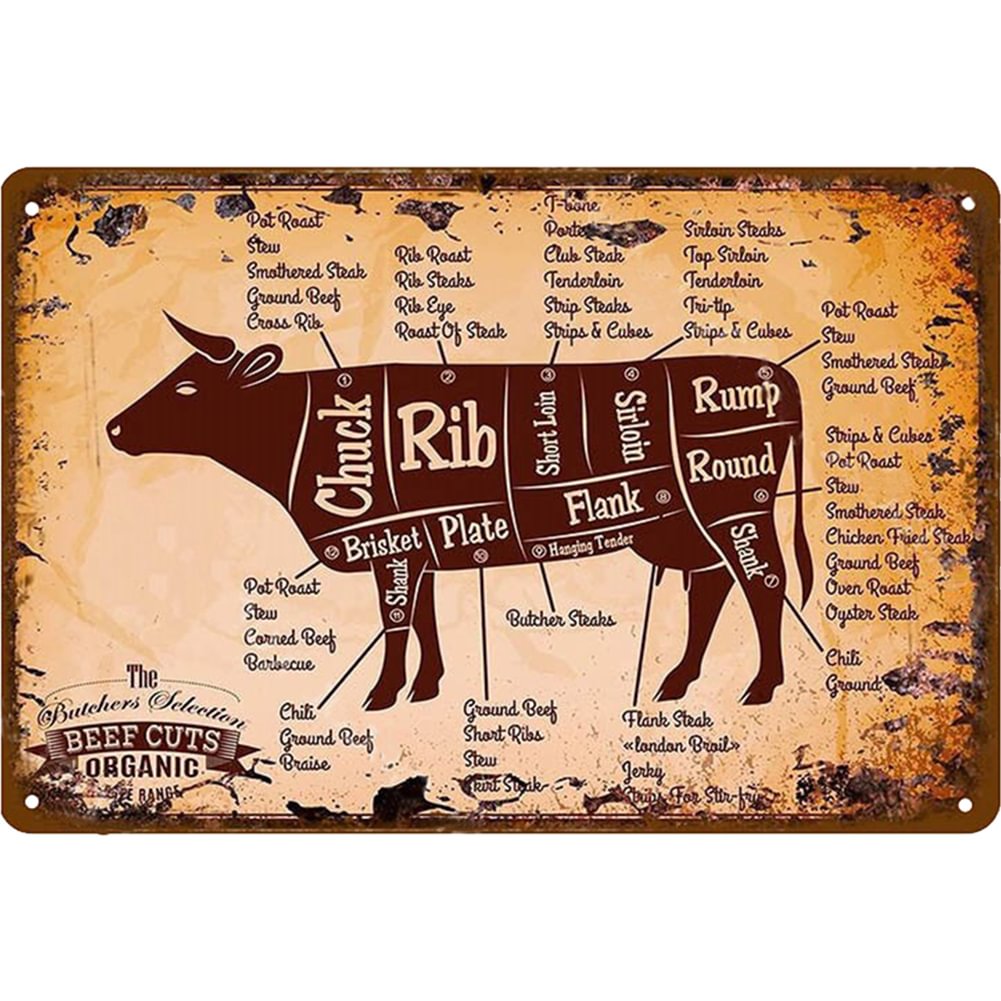 Pot Roast
Stew
Smothered Steak
Ground Beef
Cross Rib
Rib Roast
Rib Steaks
Rib Eye
Roast Of Steak
T-bone
Club Steak
Tenderloin
Strip Steaks
Strips & Cubes
Sirloin Steaks
Top Sirloin
Tenderloin
Tri-tip
Strips & Cubes
Pot Roast
Stew
Smothered Steak
Ground Beef
Strips & Cubes
Pot Roast
Stew
Smothered Steak
Chicken Fried Steak
Ground Beef
Oven Roast
Oyster Steak
Chili
Ground
1
Chuck
2
Rib
3
Short Loin
4
Sirloin
5
Rump
Round
6
Flank 8
9 Hanging Tender
Shank
7
12 Brisket
Plate
10
Shank
11
Pot Roast
Stew
Corned Beef
Barbecue
Butcher Steaks
Chili
Ground Beef
Braise
Ground Beef
Short Ribs
Stew
Skirt Steak
Flank Steak
«london Broil»
Jerky
Strips For Stir-fry
The
Butchers Selection
BEEF CUTS
ORGANIC
RANGE